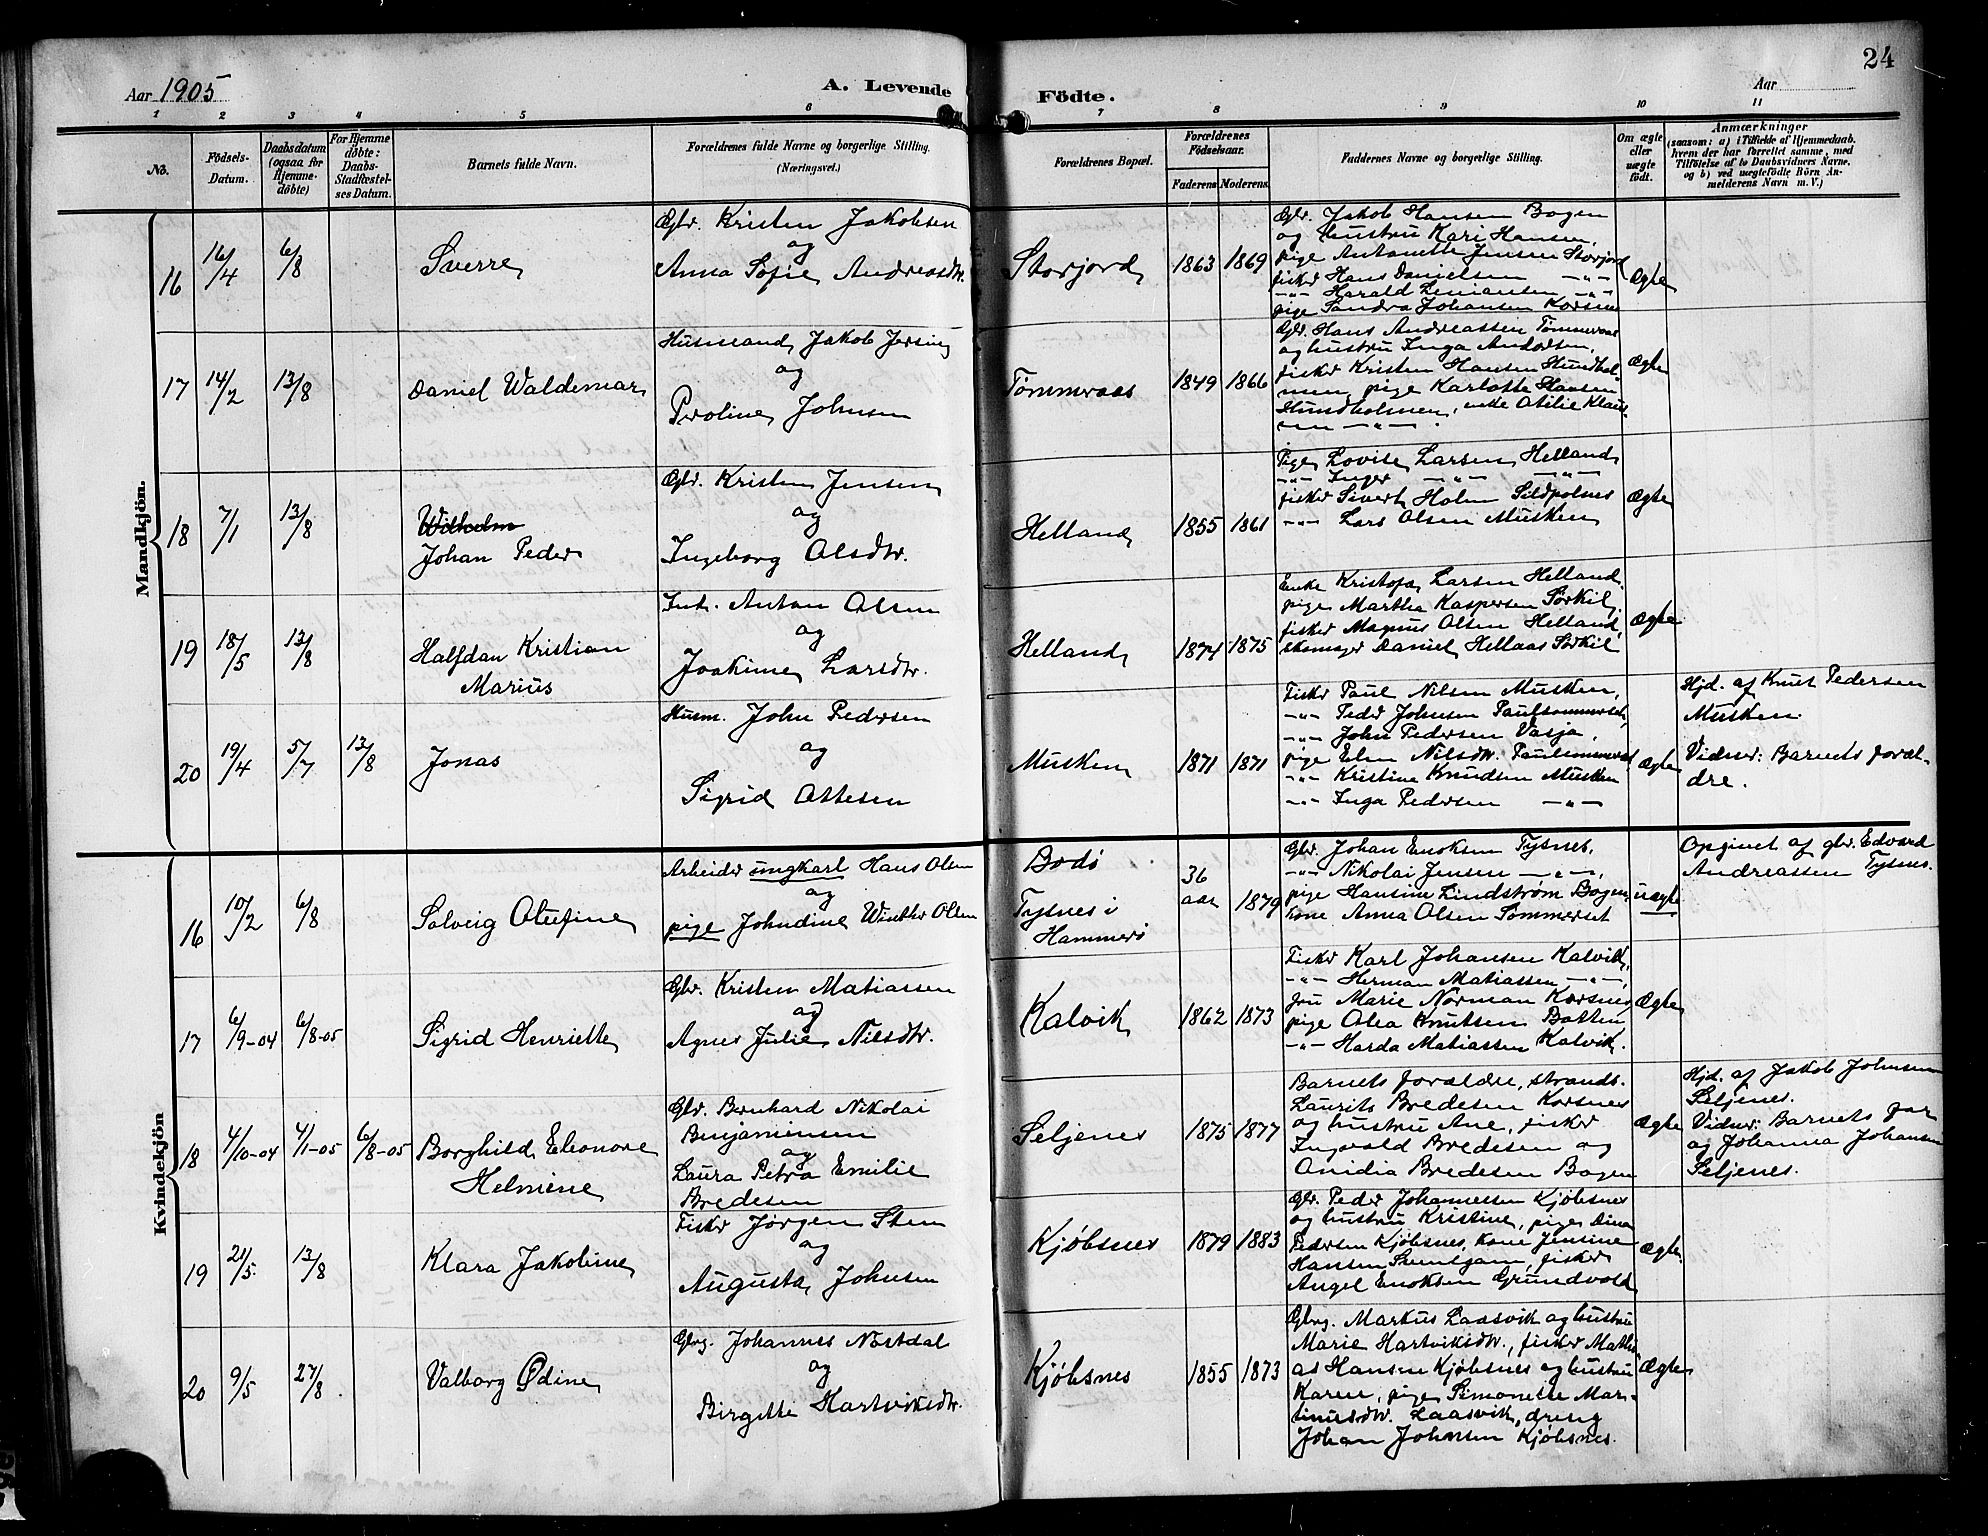 24
Aar 1905
A. Levende
Födte.
Aar
1 2 3 4 5 6 7 8 9 10 11
No.
Födsels-
Datum.
Daabsdatum
(ogsaa for
Hjemme-
döbte)
For Hjemme
döbte:
Daabs-
Stadfæstel-
ses Datum.
Barnets fulde Navn.
Forældrenes fulde Navne og borgerlige Stilling.
(Næringsvei.)
Forældrenes Bopæl.
Forældrenes
Födselsaar.
Faderens Moderens
Faddernes Navne og borgerlige Stilling.
Om ægte
eller
uægte
födt.
Anmærkninger
(saasom: a) i Tilfælde af Hjemmedaab.
hvem der har forrettet samme, med
Tilföielse af to Daabsvidners Navne,
og b) ved uægtefödte Börn An-
melderens Navn m. V.)
Mandkjön.
16
16/4
6/8
Sverre
Gbr. Kristen Jakobsen
og
Anna Sofie Andreasdtr.
Storjord
1863 1869
Gbr. Jakob Hansen Bogen
og hustru Kari Hansen,
pige Antonette Jensen Storjord
fisker Hans Danielsen -"-
-"- Harald -"-
pige Sandra Johansen Korsnes
Ægte
17
14/2
13/8
Daniel Waldemar
Husmand Jakob
og
Peroline Johnsen
Tømmeraas
1849 1866
Gbr. Hans Andreassen Tømmeraas
og hustru Inga Andersen,
fisker Kristen Hansen Hundhol-
men, pige Karlotte Hansen
Hundholmen, enke Otilie Klau-
sen -"-.
Ægte
18
7/1
13/8
Wilhelm
Johan Peder
Gbr. Kristen Jensen
og
Ingeborg Olsdtr.
Helland
1855 1861
Pige Lovise Larsen Helland
-"- Inger -"- -"-
fisker Sivert Holm Sildpolnes
-"- Lars Olsen Musken
Ægte
19
18/5
13/8
Halfdan Kristian
Marius
Ind. Anton Olsen
og
Joakime Larsdtr.
Helland
1874 1875
Enke Kristofa Larsen Helland,
pige Martha Kaspersen Sørkil,
fisker Magnus Olsen Helland,
skomager Daniel Hellaas Sørkil
Ægte
20
19/4
5/7
13/8
Jonas
Husm. John Pedersen
og
Sigrid Ottesen
Musken
1871 1871
Fisker Paul Nilsen Musken,
-"- Peder Johnsen Paulsommerset,
-"- John Pedersen Vasja,
pige Elen Nilsdtr. Paulsommerset,
-"- Kristine Knudsen Musken
-"- Inga Pedersen -"-
Ægte
Hjd. af Knut Pedersen
Musken.
Vidner: Barnets foræl-
dre.
Kvindekjön
16
10/2
6/8
Solveig Olufine
Arbeider ungkarl Hans Olsen
og
pige Johndine Winther Olsen
Bodö
Tysnes i
Hammerö
36
aar
1879
Gbr. Johan Enoksen Tysnes,
-"- Nikolai Jensen -"-,
pige Hansine Lindstrøm Bogen,
kone Anna Olsen Sommerset
uægte
Opgivet af gbr. Edvard
Andreassen Tysnes.
17
6/9-04
6/8-05
Sigrid Henriette
Gbr. Kristen Matiassen
og
Agnes Julie Nilsdtr.
Kalvik
1862 1873
Fisker Karl Johansen Kalvik,
-"- Herman Matiassen -"-,
fru Marie Norman Korsnes,
pige Olea Knutsen Botten
-"- Harda Matiassen Kalvik.
Ægte
18
4/10-04
4/1-05
6/8-05
Borghild Eleonore
Helmine
Gbr. Bernhard Nikolai
Benjaminsen
og
Laura Petra Emilie
Bredesen
Seljenes
1875 1877
Barnets forældre, strands.
Laurits Bredesen Korsnes
og hustru Ane, fisker
Ingvald Bredesen og
Anidia Bredesen Bogen
Ægte
Hjd. af Jakob Johnsen
Seljenes.
Vidner: Barnets far
og Johanna Johansen
Seljenes.
19
21/5.
13/8
Klara Jakobine
Fisker Jørgen Sten
og
Augusta Johnsen
Kjøbsnes
1879 1883
Gbr. Peder Johannessen Kjøbsnes
og hustru Kristine, pige Dina
Pedersen Kjøbsnes, kone Jensine
Hansen, fisker
Angel Enoksen Grundvold
Ægte
20
9/5
27/8
Valborg Ødine
Gbrg. Johannes Nordal
og
Birgitte Hartviksdtr.
Kjøbsnes
1855 1873
Gbrg. Markus Laasvik og hustru
Marie Hartviksdtr., fisker Mathi-
as Hansen Kjøbsnes og hustru
Karen, pige Simonette Mar-
tinusdtr. Laasvik, dreng
Johan Johnsen Kjøbsnes.
Ægte